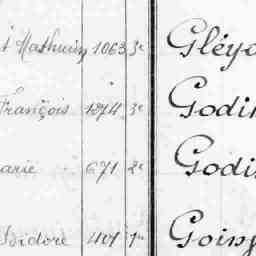 t Mathurin 1063 3e Gléya
François 1274 3e Godin
arie 671 2e Godi
Isidore 401 1re Going